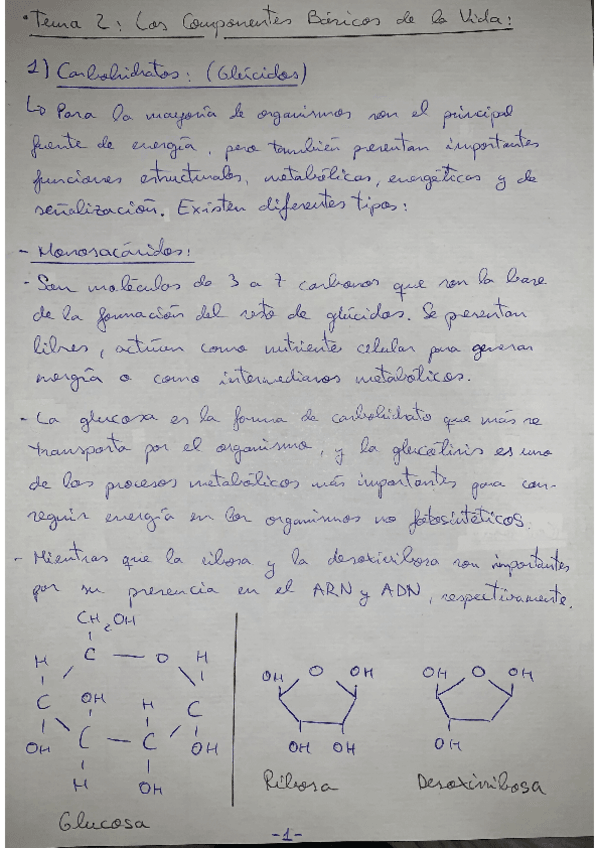 ·Tema 2: Los Componentes Básicos de la Vida:
1) Carbohidratos: (Glúcidos)
↳ Para la mayoría de organismos son el principal
fuente de energía, pero también presentan importantes
funciones estructurales, metabólicas, energéticas y de
señalización. Existen diferentes tipos:
- Monosacáridos:
- Son moléculas de 3 a 7 carbonos que son la base
de la formación del resto de glúcidos. Se presentan
libres, actúan como nutriente celular para generar
energía o como intermediarios metabólicos.
- La glucosa es la forma de carbohidrato que más se
transporta por el organismo, y la glucólisis es uno
de los procesos metabólicos más importantes para con-
seguir energía en los organismos no fotosintéticos.
- Mientras que la ribosa y la desoxirribosa son importantes
por su presencia en el ARN y ADN, respectivamente.
CH₂OH
H C O H
C OH H C
OH C C OH
H OH
Glucosa
OH O OH
OH OH
Ribosa
OH O OH
OH
Desoxirribosa
-1-